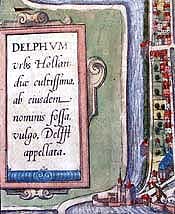 DELPHVM
vrbs Hollan-
diæ cultissima,
ab eiusdem
nominis fossa,
vulgo, Delfft
appellata.